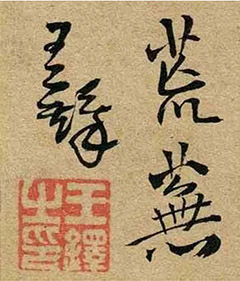 荒蕪
王鐸
王鐸之印